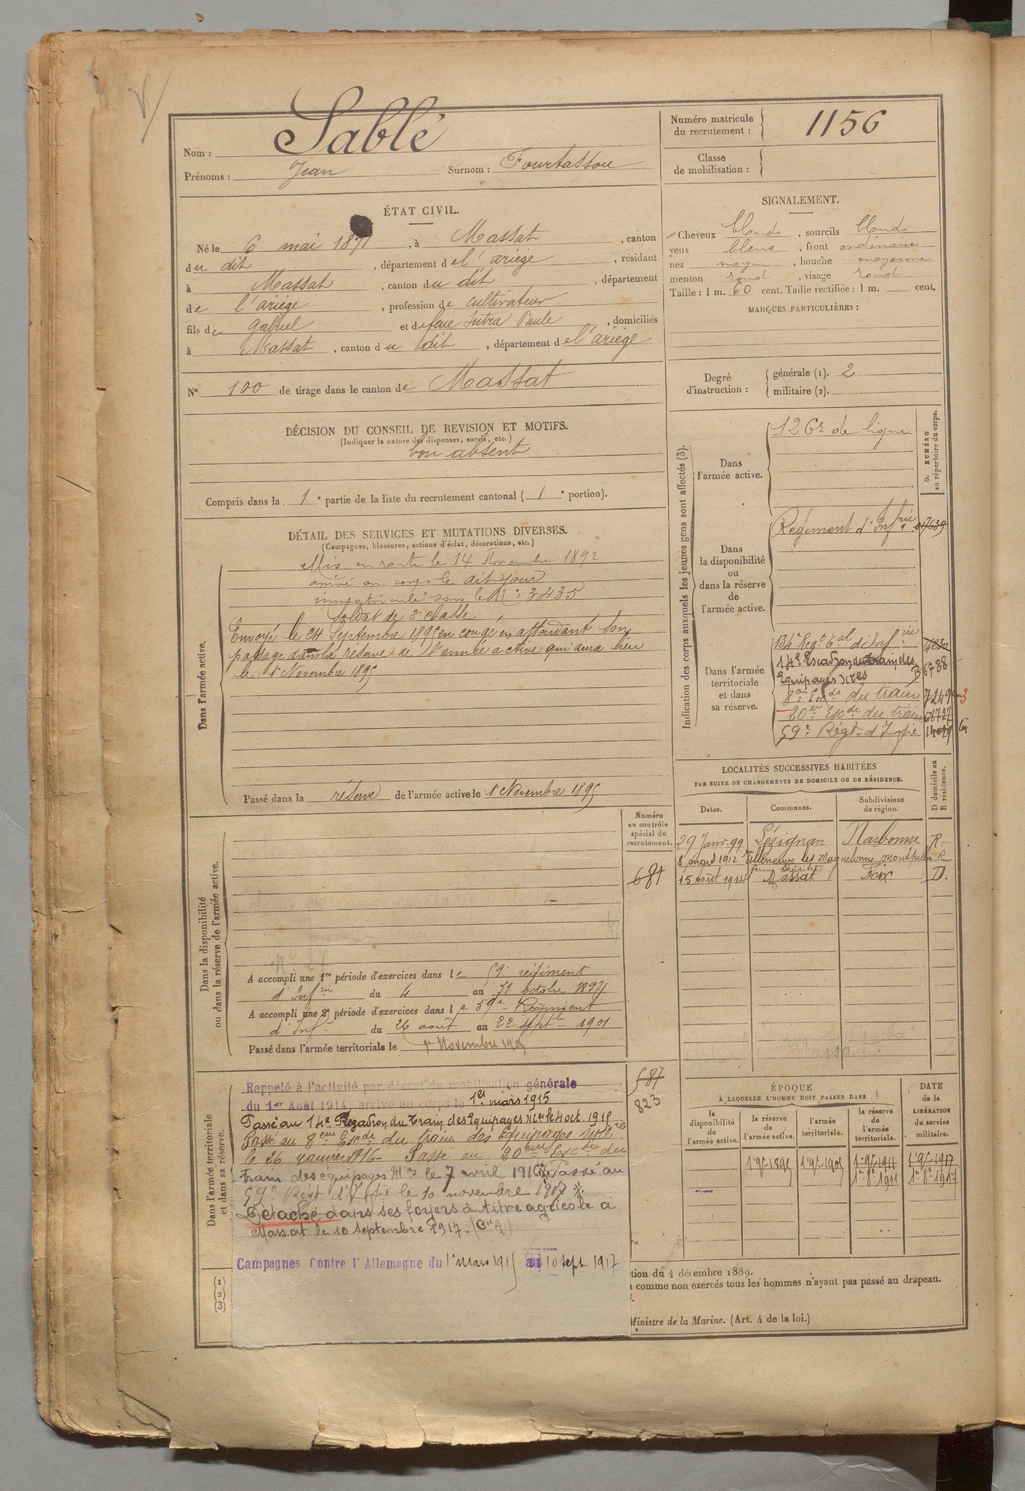 Nom : Sablé
Prénoms : Jean Surnom : Fourtassou
Numéro matricule du recrutement : 1156
Classe de mobilisation :
ÉTAT CIVIL.
Né le 6 mai 1871, à Massat, canton
du dit, département de l'ariège, résidant
à Massat, canton du dit, département
de l'ariège, profession de cultivateur
fils de gabriel et de feue Sutra Paule, domiciliés
à Massat, canton du dit, département de l'ariège
N° 100 de tirage dans le canton de Massat
SIGNALEMENT.
Cheveux blonds, sourcils blonds
yeux bleus, front ordinaire
nez moyen, bouche moyenne
menton rond, visage rond
Taille : 1 m. 60 cent. Taille rectifiée : 1 m. cent.
MARQUES PARTICULIÈRES :
Degré d'instruction : générale (1). 2
militaire (2).
DÉCISION DU CONSEIL DE REVISION ET MOTIFS.
(Indiquer la nature des dispenses, sursis, etc.)
bon absent
Compris dans la 1e partie de la liste du recrutement cantonal (1e portion).
DÉTAIL DES SERVICES ET MUTATIONS DIVERSES.
(Campagnes, blessures, actions d'éclat, décorations, etc.)
Dans l'armée active.
Mis en route le 14 Novembre 1892
arrivé au corps le dit jour
immatriculé sous le N° 3435
soldat de 2e classe
Envoyé le 24 Septembre 1895 en congé en attendant son
passage dans la réserve de l'armée active qui aura lieu
le 1 Novembre 1895
Passé dans la réserve de l'armée active le 1 Novembre 1895
Indication des corps auxquels les jeunes gens sont affectés (3).
NUMÉRO au répertoire du corps.
Dans l'armée active.
126e de ligne
Dans la disponibilité ou dans la réserve de l'armée active.
Régiment d'Infrie
Dans l'armée territoriale et dans sa réserve.
134e Régt Tal d'Infrie
14e Escadron du train des 6738
Equipages Mres
8eme Escdn du train
20eme Escdn du train
59e Régt d'Infie
LOCALITÉS SUCCESSIVES HABITÉES
PAR SUITE DE CHANGEMENTS DE DOMICILE OU DE RÉSIDENCE.
Dates. Communes. Subdivisions de région. D domicile ou R résidence.
29 Janv. 99 Lézignan Narbonne R
8 mars 1912 Villeneuve les Maguelonne Montpellier R
15 août 1914 Massat Foix D.
Numéro au contrôle spécial du recrutement.
681
Dans la disponibilité ou dans la réserve de l'armée active.
A accompli une 1re période d'exercices dans le 59e régiment
d'Infrie du 4 au 31 octobre 1897
A accompli une 2e période d'exercices dans le 59e Régiment
d'Infie du 26 août au 22 septbre 1901
Passé dans l'armée territoriale le 1er Novembre 1905
587
823
Dans l'armée territoriale et dans sa réserve.
Rappelé à l'activité par décret de mobilisation générale
du 1er Août 1914 arrivé au corps le 1er mars 1915
Passé au 14e Escadron du Train des Equipages Mres le 4 oct. 1915
Passé au 8eme Escdn du train des équipages mres
le 26 janvier 1916 Passé au 20eme Escdn du
train des équipages Mres le 7 avril 1916 Passé au
59e Régt d'Infie le 10 novembre
Détaché dans ses foyers à titre agricole à
Massat le 10 septembre 1917.
Campagnes Contre l'Allemagne du 1er mars 1915 au 10 sept. 1917
ÉPOQUE
À LAQUELLE L'HOMME DOIT PASSER DANS
la disponibilité de l'armée active. la réserve de l'armée active. l'armée territoriale. la réserve de l'armée territoriale. DATE de la LIBÉRATION du service militaire.
1er 9bre 1895 1er 9bre 1905 1er 9bre 1911 1er 9bre 1917
(1)
(2)
(3)
tion du 4 décembre 1889.
comme non exercés tous les hommes n'ayant pas passé au drapeau.
Ministre de la Marine. (Art. 4 de la loi.)